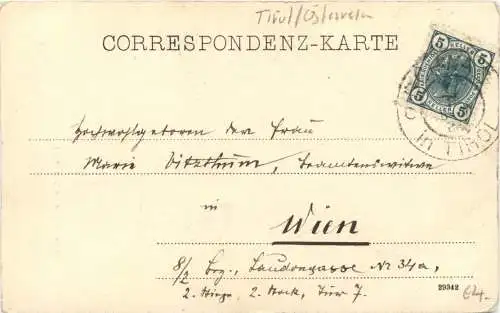 Tirol/Österreich
CORRESPONDENZ-KARTE
5 HELLER 5
5 HELLER 5
in TIROL
Hochwohlgeboren der Frau
Marie Vitzthum, Beamtenswitwe
in
Wien
8/2 Bez., Laudongasse Nr 34a,
2. Stiege, 2. Stock, Tür 7.
29342